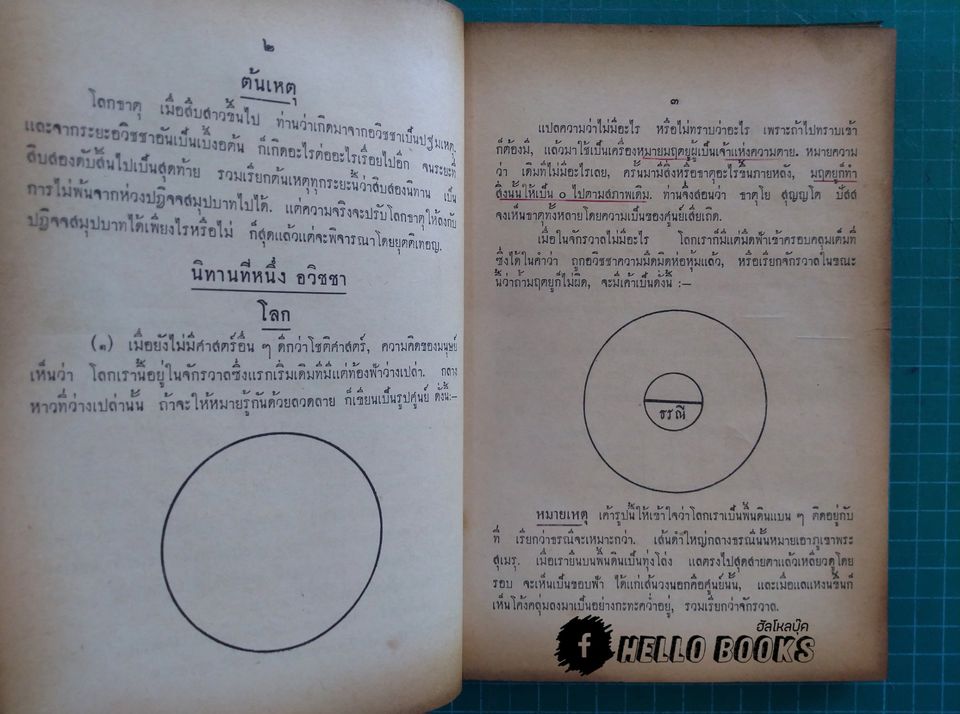 ๒
ต้นเหตุ
โลกธาตุ เมื่อสืบสาวขึ้นไป ท่านว่าเกิดมาจากอวิชชาเป็นปฐมเหตุ,
และจากระยะอวิชชาอันเป็นเบื้องต้น ก็เกิดอะไรต่ออะไรเรื่อยไปอีก จนระยะที่
สิบสองดับสิ้นไปเป็นสุดท้าย รวมเรียกต้นเหตุทุกระยะนี้ว่าสิบสองนิทาน เป็น
การไม่พ้นจากห่วงปฏิจจสมุปบาทไปได้. แต่ความจริงจะปรับโลกธาตุให้ลงกับ
ปฏิจจสมุปบาทได้เพียงไรหรือไม่ ก็สุดแล้วแต่จะพิจารณาโดยยุตติเทอญ.
นิทานที่หนึ่ง อวิชชา
โลก
(๑) เมื่อยังไม่มีศาสตร์อื่น ๆ ดีกว่าโชติศาสตร์, ความคิดของมนุษย์
เห็นว่า โลกเรานี้อยู่ในจักรวาลซึ่งแรกเริ่มเดิมทีมีแต่ท้องฟ้าว่างเปล่า. กลาง
หาวที่ว่างเปล่านั้น ถ้าจะให้หมายรู้กันด้วยลวดลาย ก็เขียนเป็นรูปศูนย์ ดั่งนี้:—
๓
แปลความว่าไม่มีอะไร หรือไม่ทราบว่าอะไร เพราะถ้าไปทราบเข้า
ก็ต้องมี, แล้วมาใช้เป็นเครื่องหมายมฤตยูผู้เป็นเจ้าแห่งความตาย. หมายความ
ว่า เดิมที่ไม่มีอะไรเลย, ครั้นมามีสิ่งหรือธาตุอะไรขึ้นภายหลัง, มฤตยูก็ทำ
สิ่งนั้นให้เป็น ๐ ไปตามสภาพเดิม. ท่านจึงสอนว่า ธาตุโย สุญฺญโต ปัสส
จงเห็นธาตุทั้งหลายโดยความเป็นของศูนย์เสียเถิด.
เมื่อในจักรวาลไม่มีอะไร โลกเราก็มีแต่มืดฟ้าเข้าครอบคลุมเต็มที่
ซึ่งได้ในคำว่า ถูกอวิชชาความมืดมิดห่อหุ้มแล้ว, หรือเรียกจักรวาลในขณะ
นี้ว่าถ้ำมฤตยูก็ไม่ผิด, จะมีเค้าเป็นดั่งนี้ :—
ธรณี
หมายเหตุ เค้ารูปนี้ให้เข้าใจว่าโลกเราเป็นพื้นดินแบน ๆ ติดอยู่กับ
ที่ เรียกว่าธรณีจะเหมาะกว่า. เส้นดำใหญ่กลางธรณีนั้นหมายเอาภูเขาพระ
สุเมรุ. เมื่อเรายืนบนพื้นดินเป็นทุ่งโล่ง แลตรงไปสุดสายตาแล้วเหลียวดูโดย
รอบ จะเห็นเป็นขอบฟ้า ได้แก่เส้นวงนอกคือศูนย์นั้น, และเมื่อแลแหงนขึ้นก็
เห็นโค้งคลุ่มลงมาเป็นอย่างกะทะคว่ำอยู่, รวมเรียกว่าจักรวาล.
ฮัลโหลบุ๊ค
f HELLO BOOKS